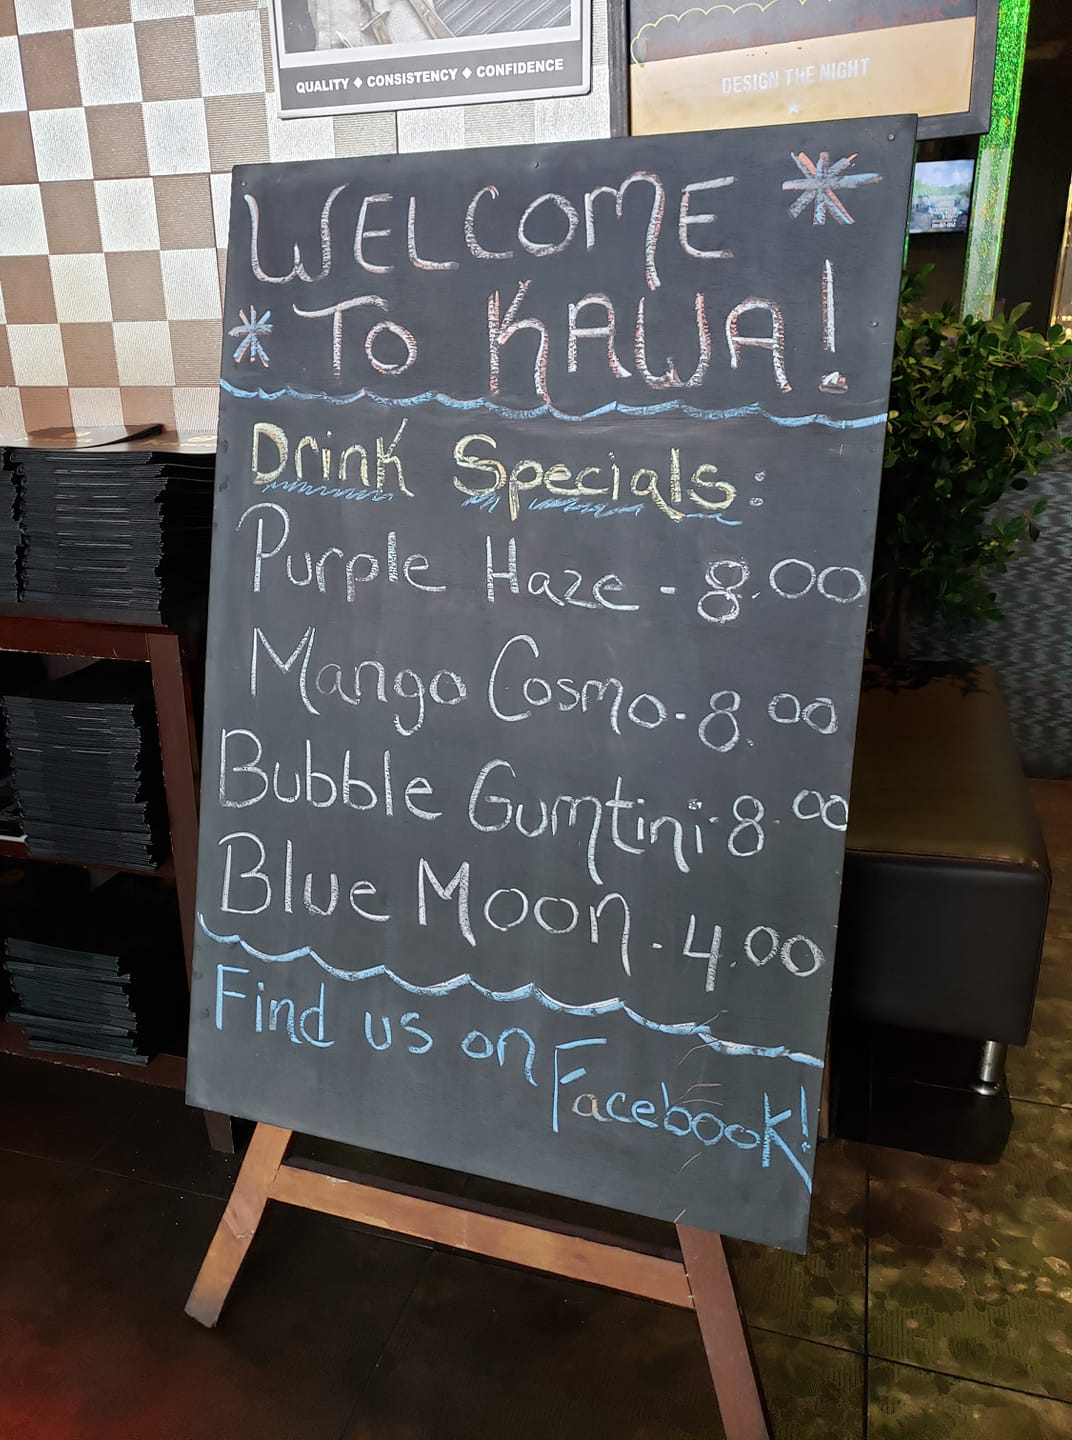 QUALITY ♦ CONSISTENCY ♦ CONFIDENCE
DESIGN THE NIGHT
WELCOME
TO KAWA!
Drink Specials:
Purple Haze - 8.00
Mango Cosmo - 8.00
Bubble Gumtini - 8.00
Blue Moon - 4.00
Find us on Facebook!